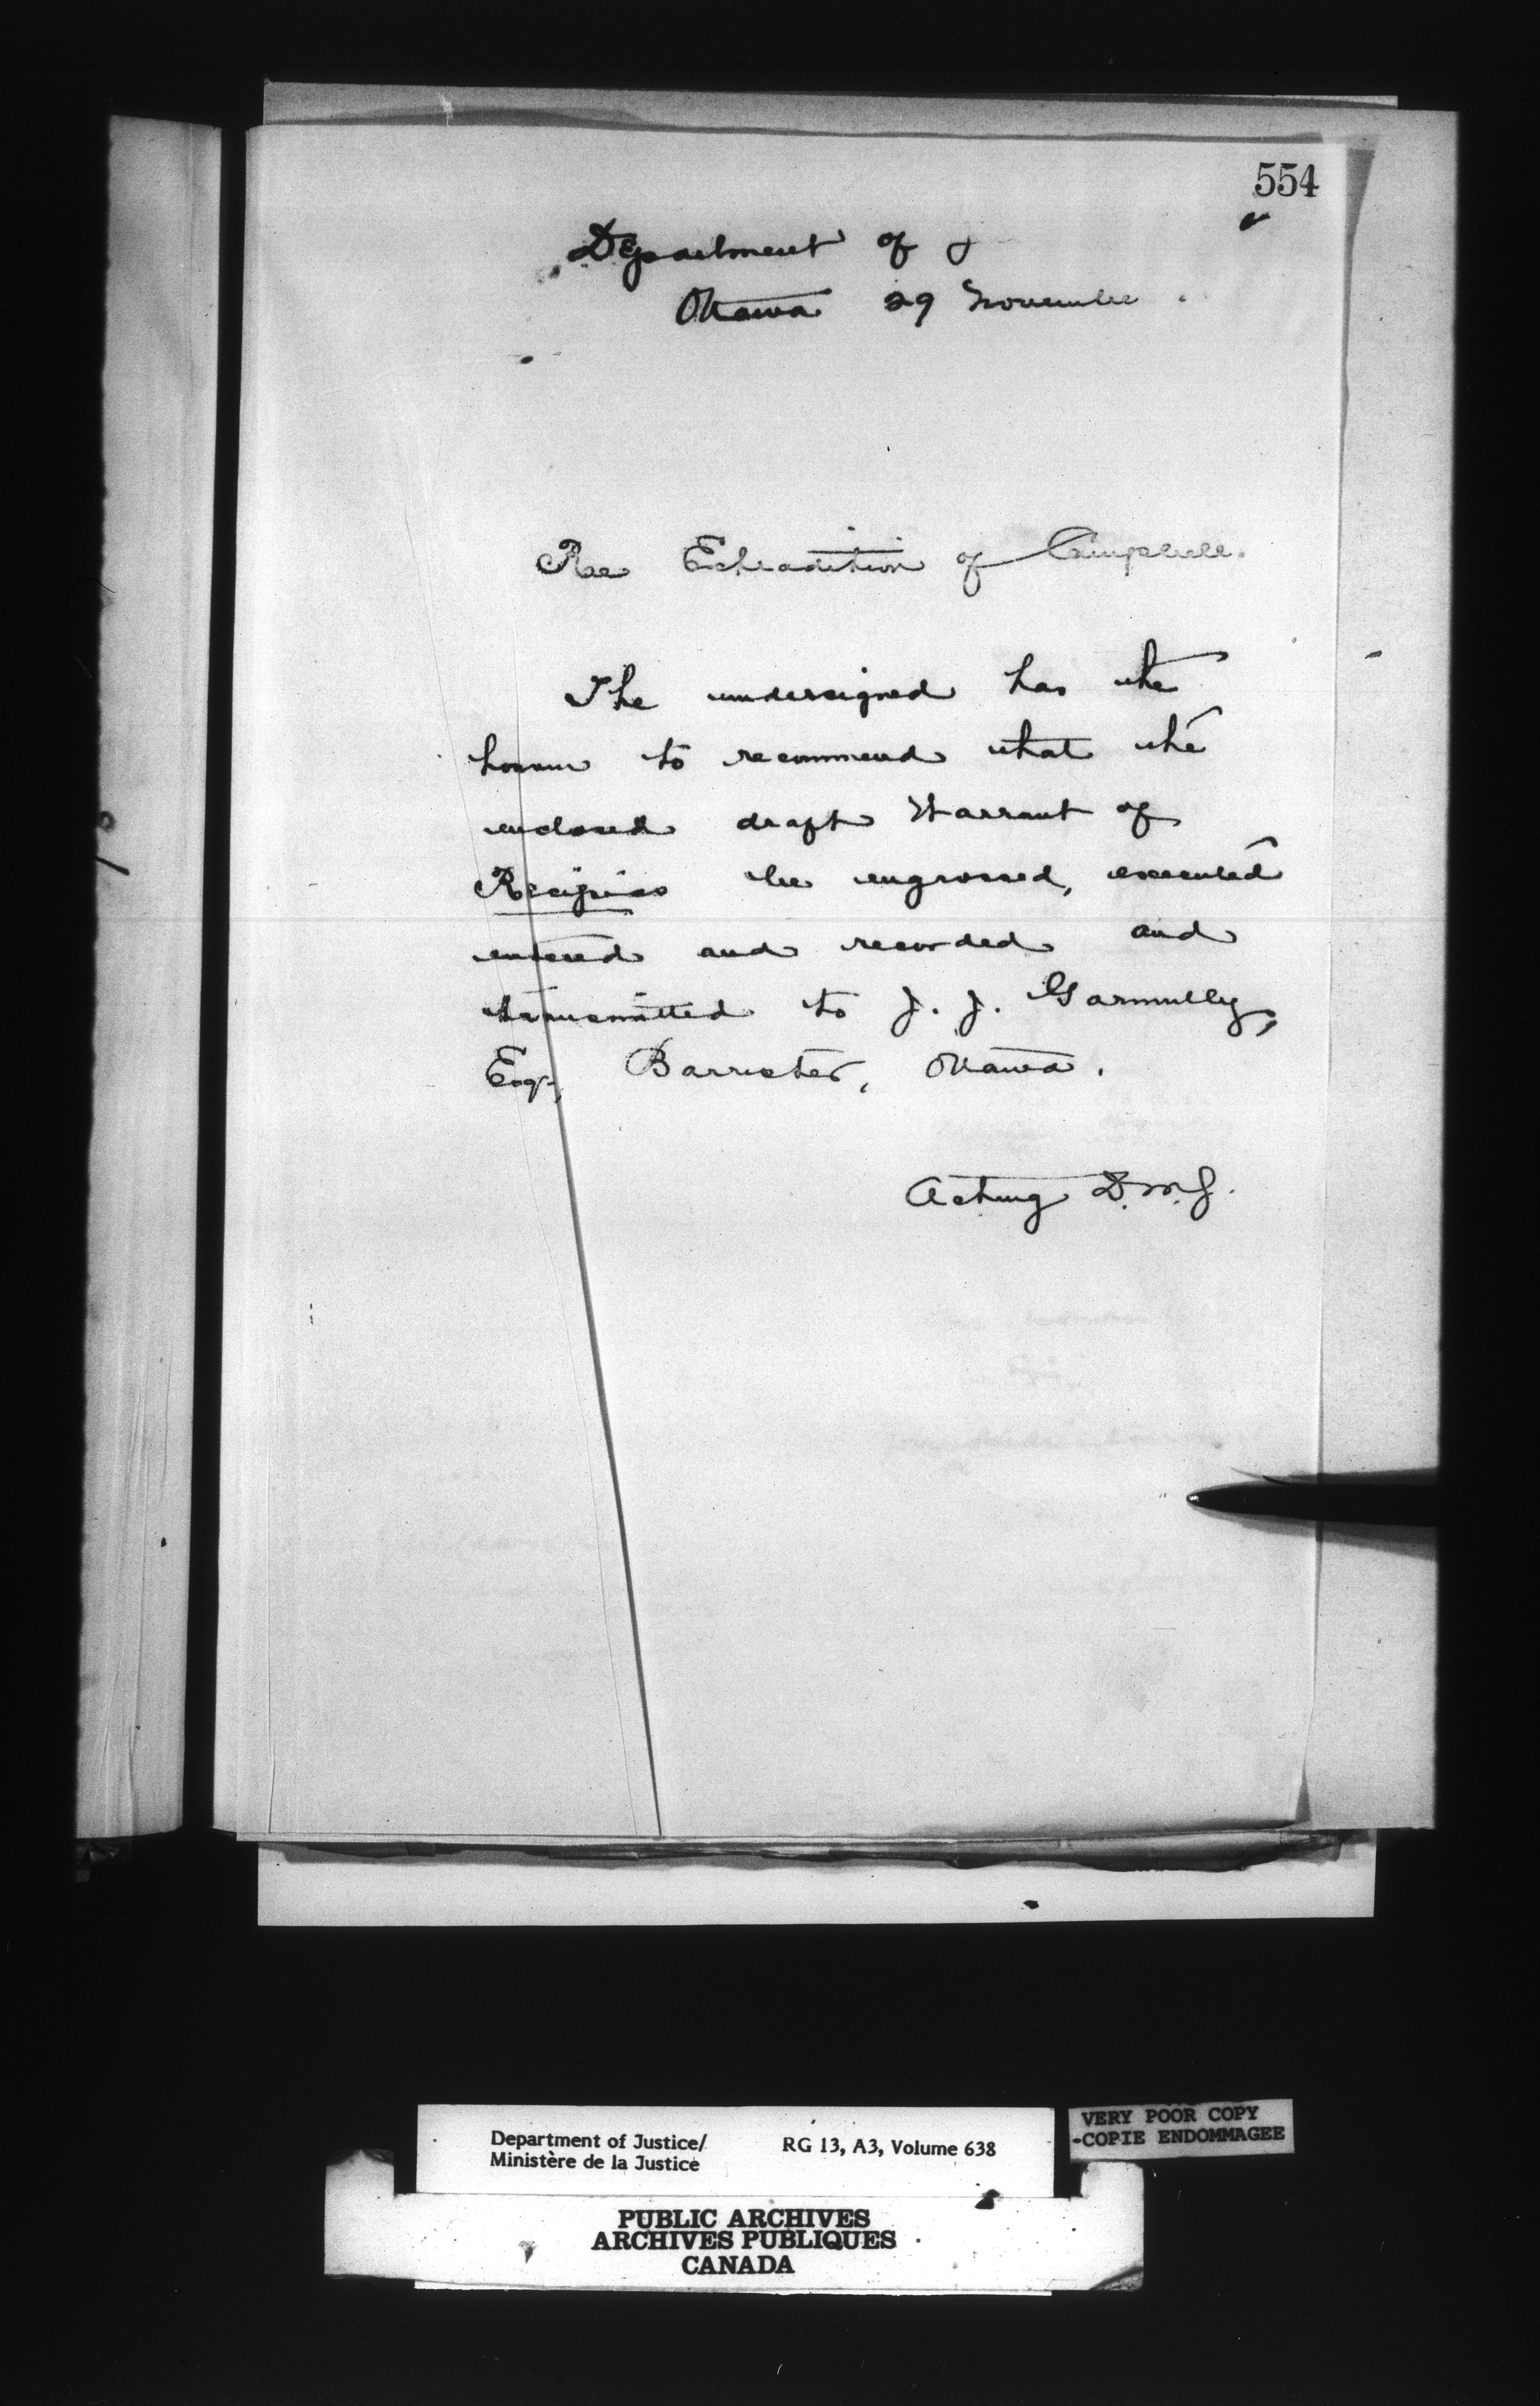 554
Department of J
Ottawa 29 November
Re Extradition of Campbell.
The undersigned has the
honour to recommend that the
enclosed draft Warrant of
Recipias be engrossed, executed
entered and recorded and
transmitted to J. J. Gormully,
Esq., Barrister, Ottawa.
Acting D.M.J.
Department of Justice/ RG 13, A3, Volume 638
Ministère de la Justice
VERY POOR COPY
-COPIE ENDOMMAGEE
PUBLIC ARCHIVES
ARCHIVES PUBLIQUES
CANADA